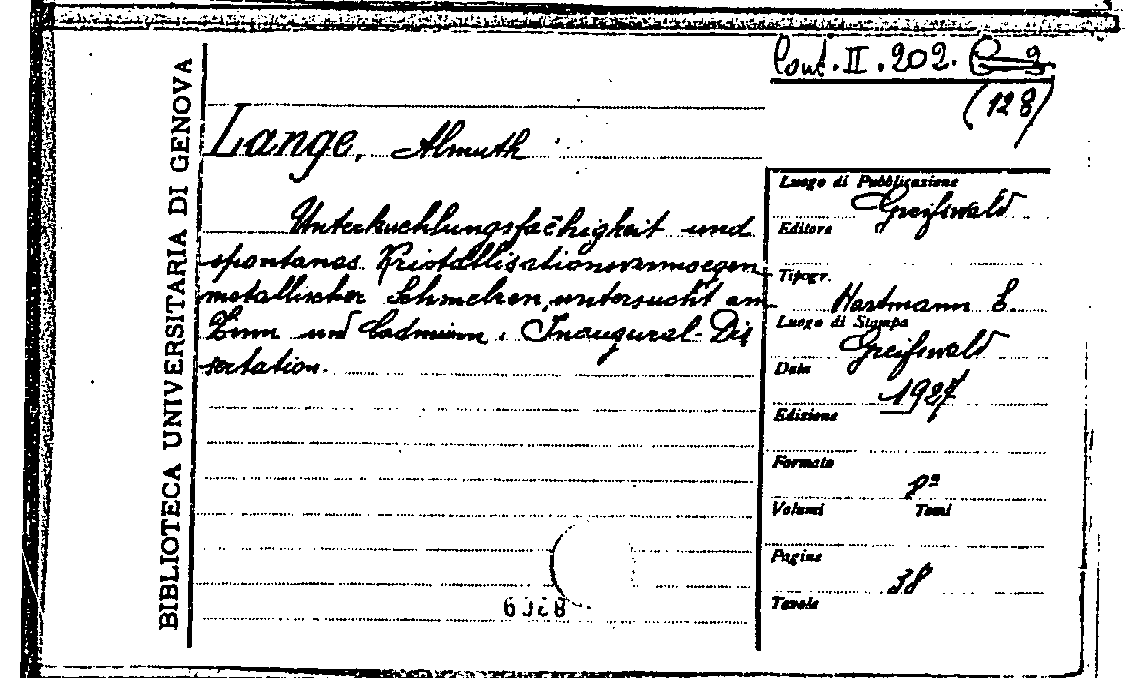 Cont. II. 202.
(128)
BIBLIOTECA UNIVERSITARIA DI GENOVA
Lange, Almuth
Unterkuehlungsfaehigkeit und
spontanes Kristallisationsvermoegen
metallischer Schmelzen, untersucht am
Zinn und Cadmium. Inaugural-Dis
sertation.
Luogo di Pubblicazione
Greifswald
Editore
Tipogr.
Hartmann E.
Luogo di Stampa
Greifswald
Data
1927
Edizione
Formato
8º
Volumi Tomi
Pagine
38
Tavole